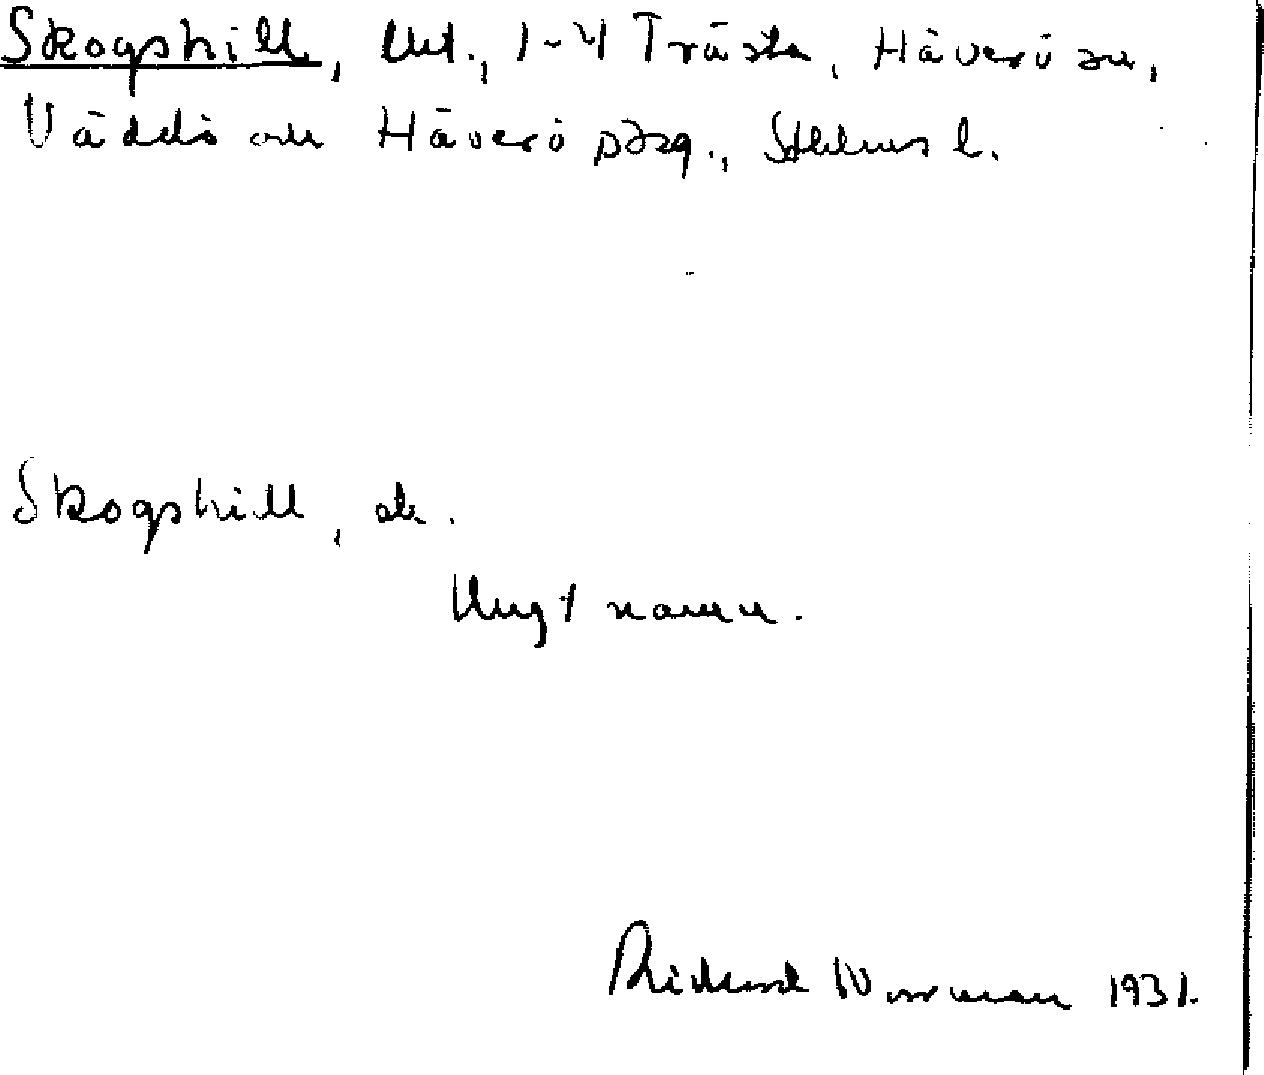 Skogshill, Utt., 1-4 Trästa, Häverö sn,
Väddö och Häverö skg., Sthlms l.
Skogshill, ok.
Ungt namn.
Rickard Norrman 1931.